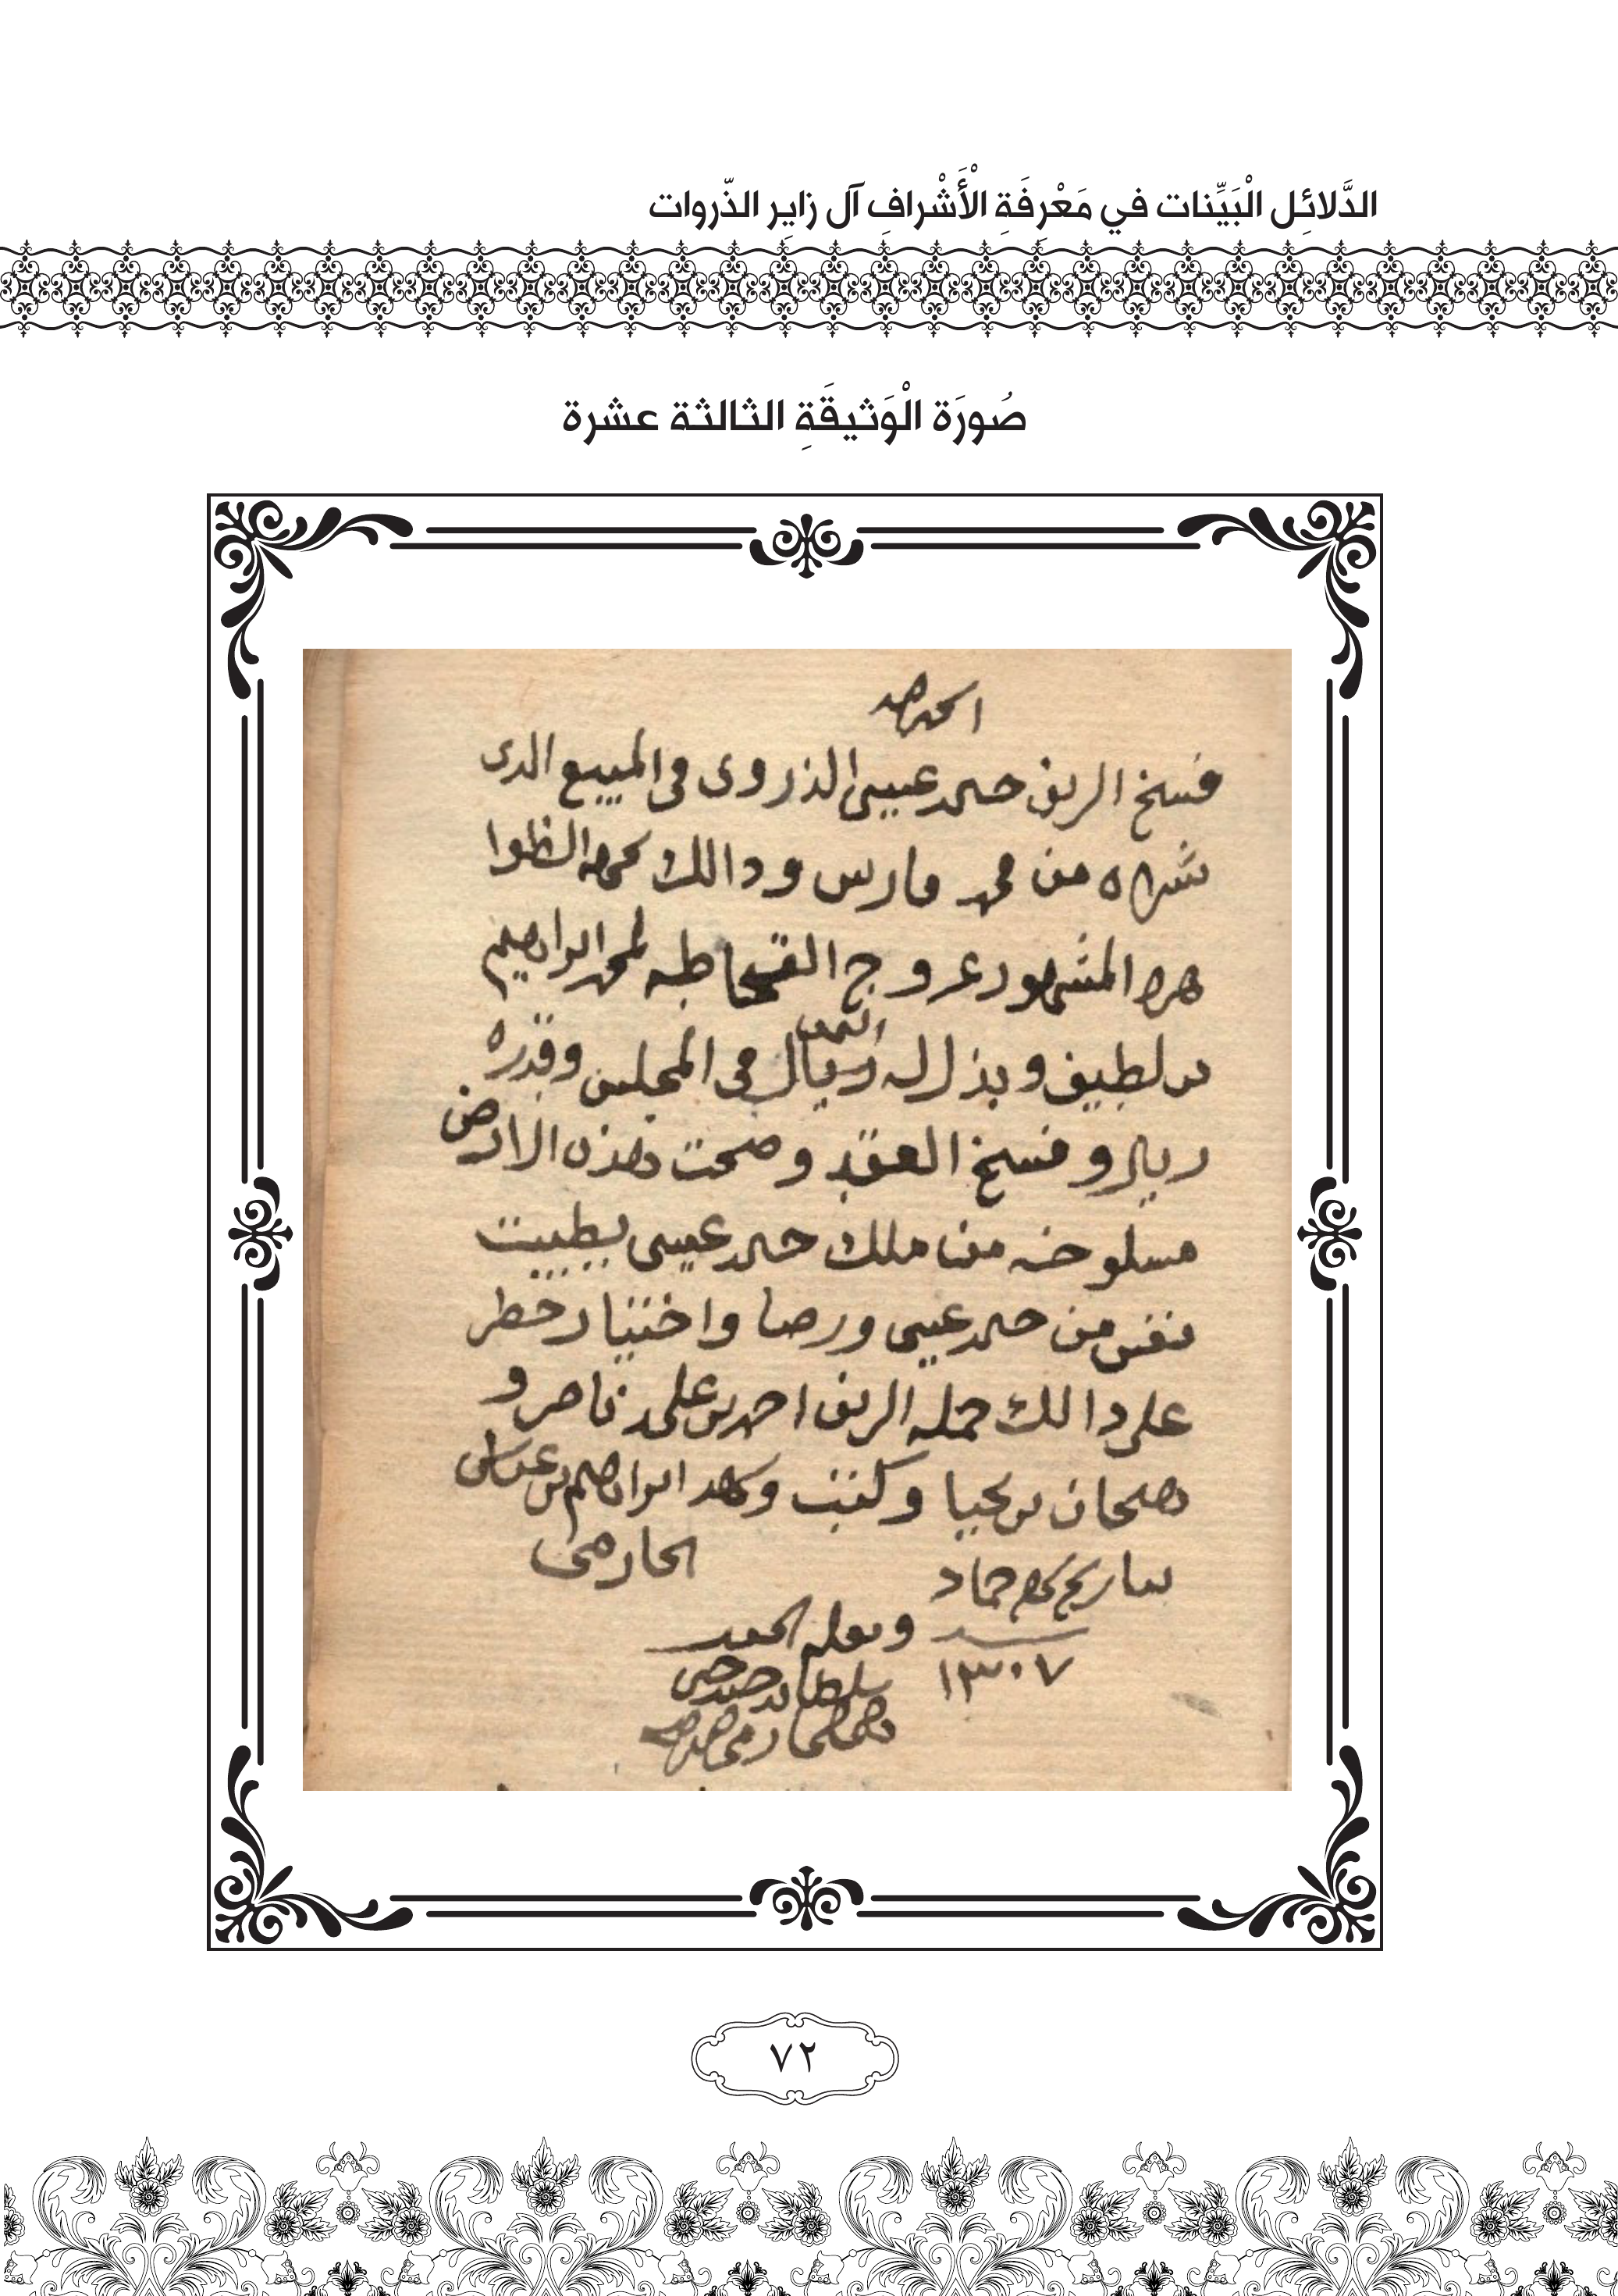 الدَّلائِل الْبَيِّنات في مَعْرِفَةِ الْأَشْرافِ آل زايِر الذّروات
صُورَة الْوَثيقَةِ الثالثة عشرة
الحمد لله
فسخ الريف حمد عيسى الذروى فى المبيع الدى
شراه من محمد فارس ودالك
هره المشهور عروج لمحمد ابراهيم
بن لطيف وبذل له ريال فى المجلس وقدره
ريال وفسخ العقد وصحت هذه الارض
مسلوخه من ملك حمد عيسى بطيبت
نفس من حمد عيسى ورضا واختيار حظر
على دالك جمله الريف احمد بن على ناصر و
بن يحيا وكتب وشهد ابراهيم بن عباس
الحازمى
بتاريخ شهر جماد
١٣٠٧
ونقله
سلطان
٧٢